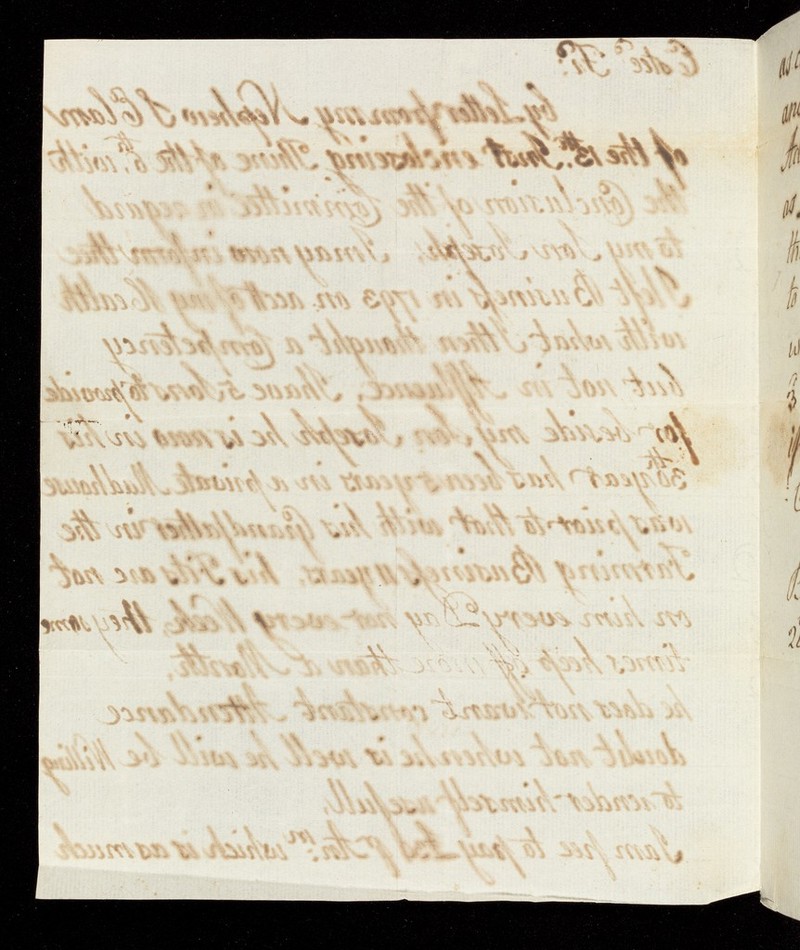 Esteed. Fr:
by Letter from my Nephew S Elam
of the 13th. Inst enclosing Thine of the 6th. with
the Conclusion of the Committee in regard
to my Son Joseph, I may now inform thee
I left Business in 1793 on acct of my Health
with what I then thought a Competency
but not in Affluence, I have 5 Sons to provide
for beside my Son Joseph he is now in his
30th year has been 5 years in a private Madhouse
was prior to that with his Grandfather in the
Farming Business 11 years, his Fits are not
on him every Day nor every Week, they some
times keep off more than a Month,
he does not want constant Attendance
doubt not when he is well he will be Willing
to render himself usefull,
I am free to pay p Ann:m which is as much
as
to